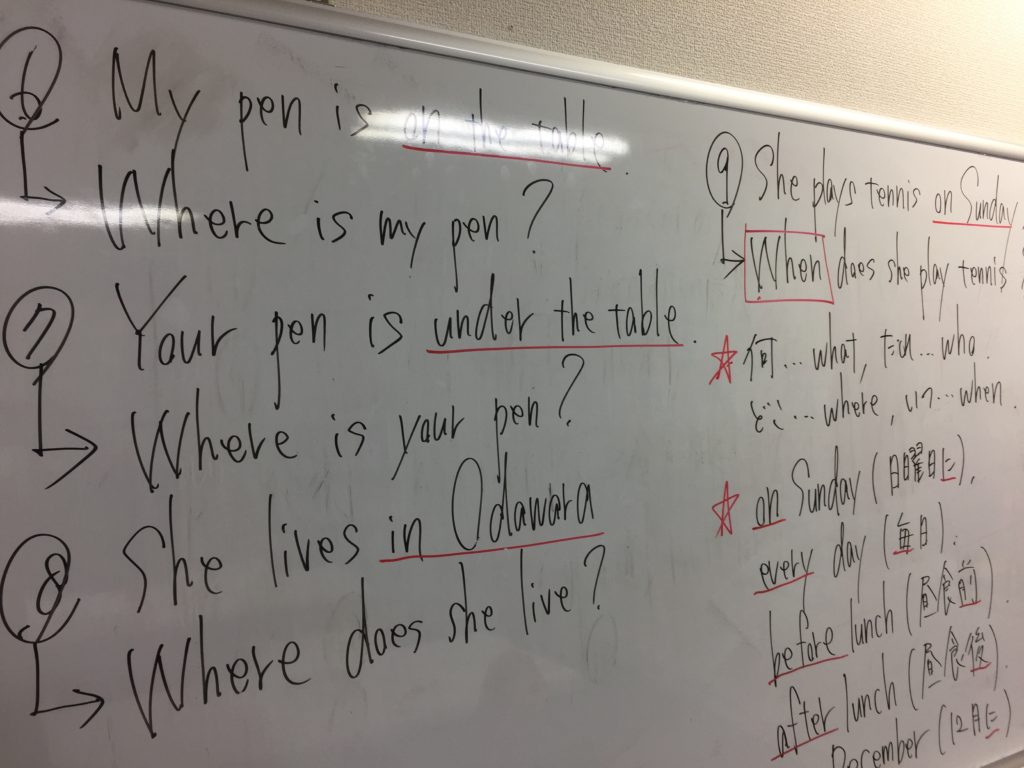 ⑥ My pen is on the table.
→ Where is my pen?
⑦ Your pen is under the table.
→ Where is your pen?
⑧ She lives in Odawara
→ Where does she live?
⑨ She plays tennis on Sunday
→ When does she play tennis
☆ 何…what, だれ…who.
どこ…where, いつ…when.
☆ on Sunday (日曜日に).
every day (毎日).
before lunch (昼食前).
after lunch (昼食後).
December (12月に)